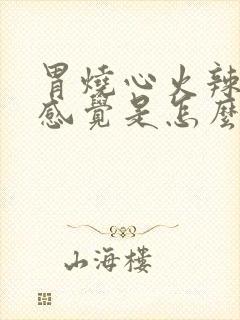 胃燒心火辣
感覺是怎麼
山海樓